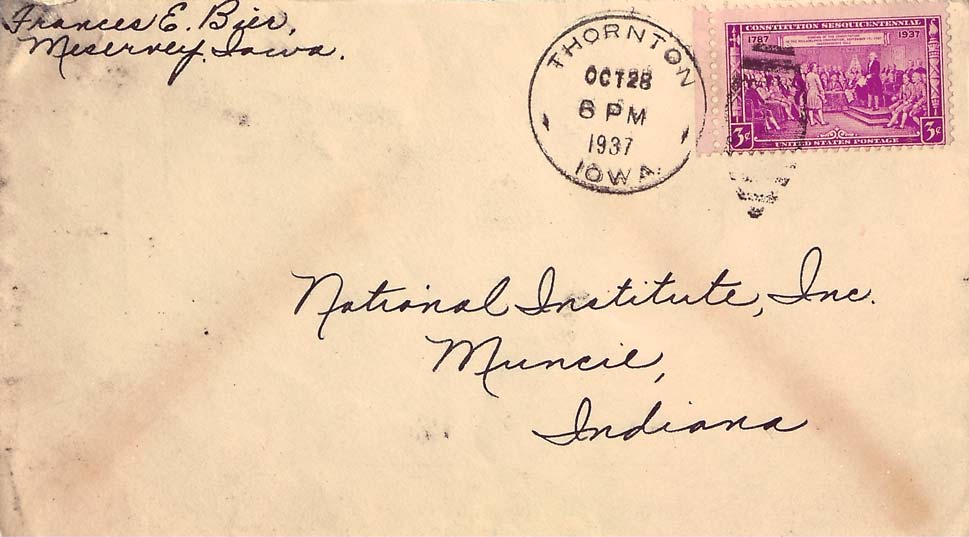 Frances E. Bier,
Meservey, Iowa.
THORNTON
OCT 28
6 PM
1937
IOWA.
CONSTITUTION SESQUICENTENNIAL
1787
1937
3¢
3¢
UNITED STATES POSTAGE
National Institute, Inc.
Muncie,
Indiana